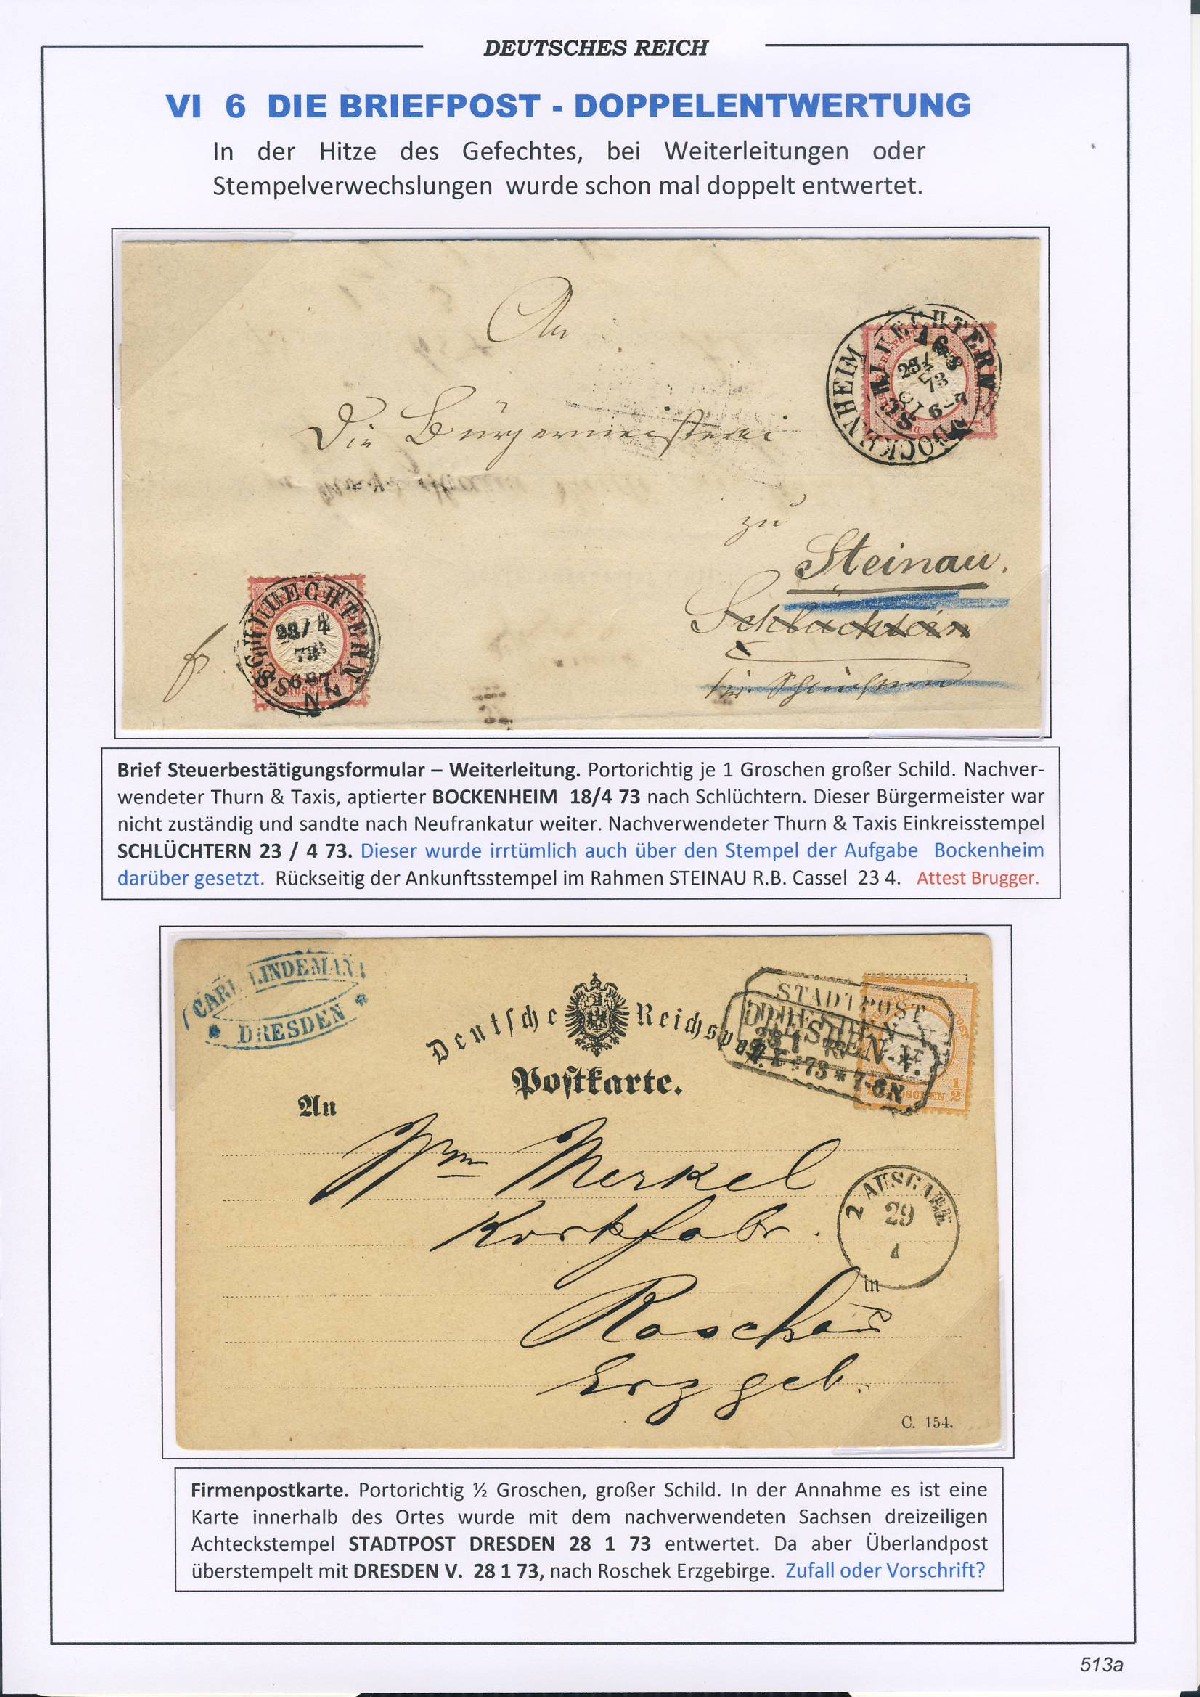 DEUTSCHES REICH
VI 6 DIE BRIEFPOST - DOPPELENTWERTUNG
In der Hitze des Gefechtes, bei Weiterleitungen oder
Stempelverwechslungen wurde schon mal doppelt entwertet.
An
Die Bürgermeisterei
zu
Steinau.
Schlüchtern
BOCKENHEIM
SCHLUECHTERN
23/4
73
6-7
SCHLUECHTERN
23/4
73
6-7
N
Brief Steuerbestätigungsformular – Weiterleitung. Portorichtig je 1 Groschen großer Schild. Nachver-
wendeter Thurn & Taxis, aptierter BOCKENHEIM 18/4 73 nach Schlüchtern. Dieser Bürgermeister war
nicht zuständig und sandte nach Neufrankatur weiter. Nachverwendeter Thurn & Taxis Einkreisstempel
SCHLÜCHTERN 23 / 4 73. Dieser wurde irrtümlich auch über den Stempel der Aufgabe Bockenheim
darüber gesetzt. Rückseitig der Ankunftsstempel im Rahmen STEINAU R.B. Cassel 23 4. Attest Brugger.
CARL LINDEMANN
* DRESDEN *
Deutsche Reichspost
Postkarte.
STADTPOST
DRESDEN
DRESDEN. V.
73 * 7-8 N
1/2
An
Wm Merkel
Korkfabr.
2 AUSGABE
29
in
Raschau
Erzgeb.
C. 154.
Firmenpostkarte. Portorichtig ½ Groschen, großer Schild. In der Annahme es ist eine
Karte innerhalb des Ortes wurde mit dem nachverwendeten Sachsen dreizeiligen
Achteckstempel STADTPOST DRESDEN 28 1 73 entwertet. Da aber Überlandpost
überstempelt mit DRESDEN V. 28 1 73, nach Roschek Erzgebirge. Zufall oder Vorschrift?
513a